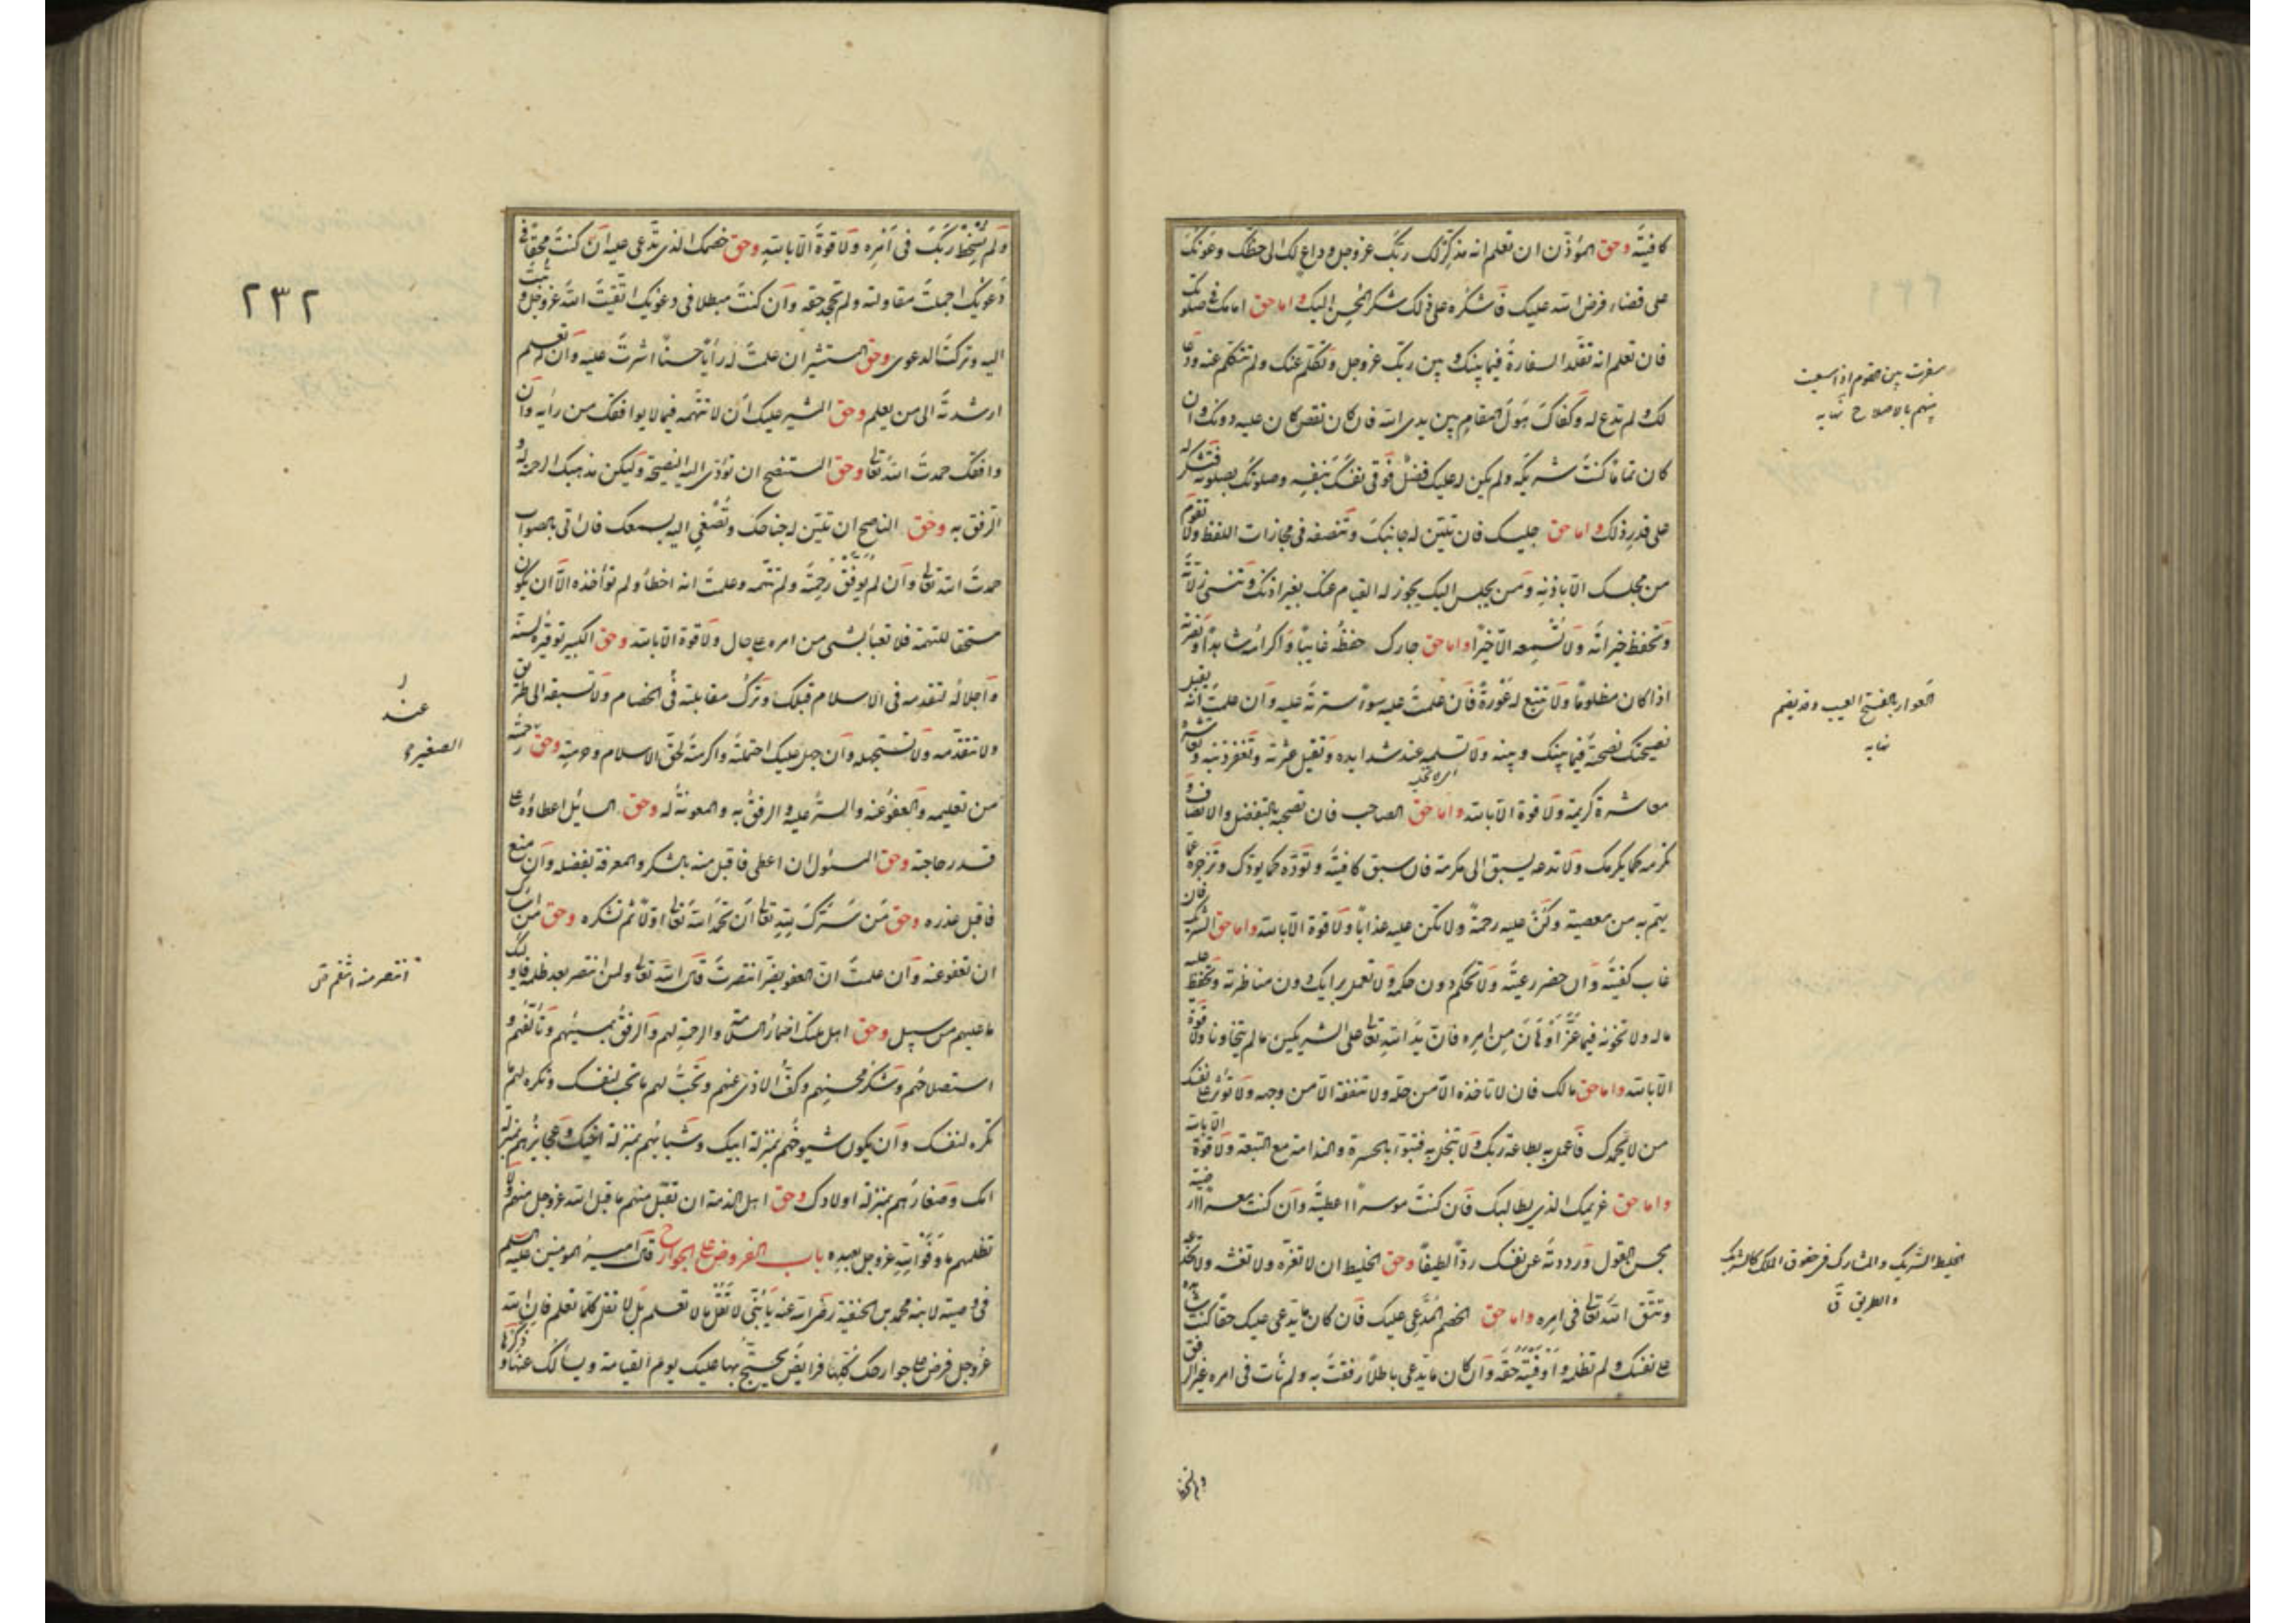 كافيته وحق المؤذن ان تعلم انه مذكر لك ربك عز وجل وداع لك الى حظك وعونك
على قضاء فرض الله عليك فاشكره على ذلك شكر المحسن اليك واما حق امامك في صلوتك
فان تعلم انه تقلد السفارة فيما بينك وبين ربك عز وجل وتكلم عنك ولم تتكلم عنه ودعا
لك ولم تدع له وكفاك هول المقام بين يدى الله فان كان نقص كان عليه دونك وان
كان تماما كنت شريكه ولم يكن له عليك فضل فوقى نفسك بنفسه وصلوتك بصلوته فتشكر له
على قدر ذلك واما حق جليسك فان تلين له جانبك وتنصفه فى مجازات اللفظ ولا تقوم
من مجلسك الا باذنه ومن يجلس اليك يجوز له القيام عنك بغير اذنك وتنسى زلاته
وتحفظ خيراته ولا تسمعه الا خيرا واما حق جارك حفظه غايبا واكرامه شاهدا ونصرته
اذا كان مظلوما ولا تتبع له عورة فان علمت عليه سوءا سترته عليه وان علمت انه يقبل
نصيحتك نصحته فيما بينك وبينه ولا تسلمه عند شدايده وتقيل عثرته وتغفر ذنبه وتعاشره
معاشرة كريمة ولا قوة الا بالله واما حق الصاحب فان تصحبه بالتفضل والانصاف و
تكرمه كما يكرمك ولا تدعه يسبق الى مكرمة فان سبق كافيته وتوده كما يودك وتزجره عما
يهم به من معصية وكن عليه رحمة ولا تكن عليه عذابا ولا قوة الا بالله واما حق الشريك فان
غاب كفيته وان حضر رعيته ولا تحكم دون حكمه ولا تعمل برايك دون مناظرته وتحفظ عليه
ماله ولا تخونه فيما عز او هان من امره فان يد الله تعالى على الشريكين ما لم يتخاونا ولا قوة
الا بالله واما حق مالك فان لا تاخذه الا من حله ولا تنفقه الا من وجهه ولا تؤثر على نفسك
من لا يحمدك فاعمل به بطاعة ربك ولا تبخل به فتبوء بالحسرة والندامة مع التبعة ولا قوة الا بالله
واما حق غريمك الذي يطالبك فان كنت موسرا اعطيته وان كنت معسرا ارضيته
بحسن القول ورددته عن نفسك ردا لطيفا وحق الخليط ان لا تغره ولا تغشه ولا تخدعه
وتتق الله تعالى فى امره واما حق الخصم المدعى عليك فان كان ما يدعى عليك حقا كنت شاهده
على نفسك ولم تظلمه واوفيته حقه وان كان ما يدعى باطلا رفقت به ولم تأت فى امره غير الرفق
سفرت بين القوم اذا سعيت
بينهم بالاصلاح نهايه
العوار بالفتح العيب وقد يضم
نهايه
الخليط الشريك والمشارك فى حقوق الملك كالشرب
والطريق ق
ولم تسخط
ولم تسخط ربك فى امره ولا قوة الا بالله وحق خصمك الذى تدعى عليه ان كنت محقا فى
دعوتك اجملت مقاولته ولم تجحد حقه وان كنت مبطلا فى دعوتك اتقيت الله عز وجل وتبت
اليه وتركت الدعوى وحق المستشير ان علمت له رأيا حسنا اشرت عليه وان لم تعلم
ارشدته الى من يعلم وحق المشير عليك ان لا تتهمه فيما لا يوافقك من رأيه وان
وافقك حمدت الله تعالى وحق المستنصح ان تؤدى اليه النصيحة وليكن مذهبك الرحمة له و
الرفق به وحق الناصح ان تلين له جناحك وتصغي اليه بسمعك فان اتى بالصواب
حمدت الله تعالى وان لم يوفق رحمته ولم تتهمه وعلمت انه اخطأ ولم تؤاخذه الا ان يكون
مستحقا للتهمة فلا تعبأ بشيء من امره على حال ولا قوة الا بالله وحق الكبير توقيره لسنه
واجلاله لتقدمه فى الاسلام قبلك وترك مقابلته فى الخصام ولا تسبقه الى طريق
ولا تتقدمه ولا تستجهله وان جهل عليك احتملته واكرمته لحق الاسلام وحرمته وحق رحمته
من تعليمه والعفو عنه والستر عليه والرفق به والمعونة له وحق السايل اعطاؤه على
قدر حاجته وحق المسئول ان اعطى فاقبل منه بالشكر والمعرفة بفضله وان منع
فاقبل عذره وحق من سرك لله تعالى ان تحمد الله تعالى اولا ثم تشكره وحق من اساءك
ان تعفو عنه وان علمت ان العفو يضر انتصرت قال الله تعالى ولمن انتصر بعد ظلمه فاولئك
ما عليهم من سبيل وحق اهل ملتك اضمار السلامة والرحمة لهم والرفق بمسيئهم وتألفهم و
استصلاحهم وشكر محسنهم وكف الاذى عنهم وتحب لهم ما تحب لنفسك وتكره لهم ما
تكره لنفسك وان يكون شيوخهم بمنزلة ابيك وشبابهم بمنزلة اخيك وعجايزهم بمنزلة
امك وصغارهم بمنزلة اولادك وحق اهل الذمة ان تقبل منهم ما قبل الله عز وجل منهم ولا
تظلمهم ما وفوا لله عز وجل بعهده باب الفروض على الجوارح قال امير المومنين عليه السلم
فى وصيته لابنه محمد بن الحنفية رضى الله عنه يا بنى لا تقل ما لا تعلم بل لا تقل كلما تعلم فان الله
عز وجل فرض على جوارحك كلها فرايض يحتج بها عليك يوم القيامة ويسألك عنها وذكرها
٢٣٢
عند
الصغير
انتصر منه انتقم ق